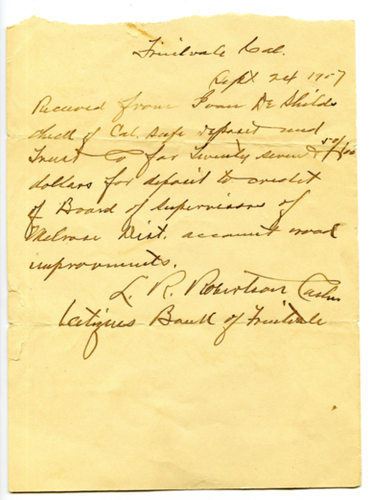 Fruitvale Cal.
Sept 24 1907
Received from Ivan De Shields
check of Cal. Safe Deposit and
Trust Co for Twenty seven & 50/100
dollars for deposit to credit
of Board of Supervisors of
Melrose Dist. account road
improvments.
L. R. Robertson Cash
Citizens Bank of Fruitvale